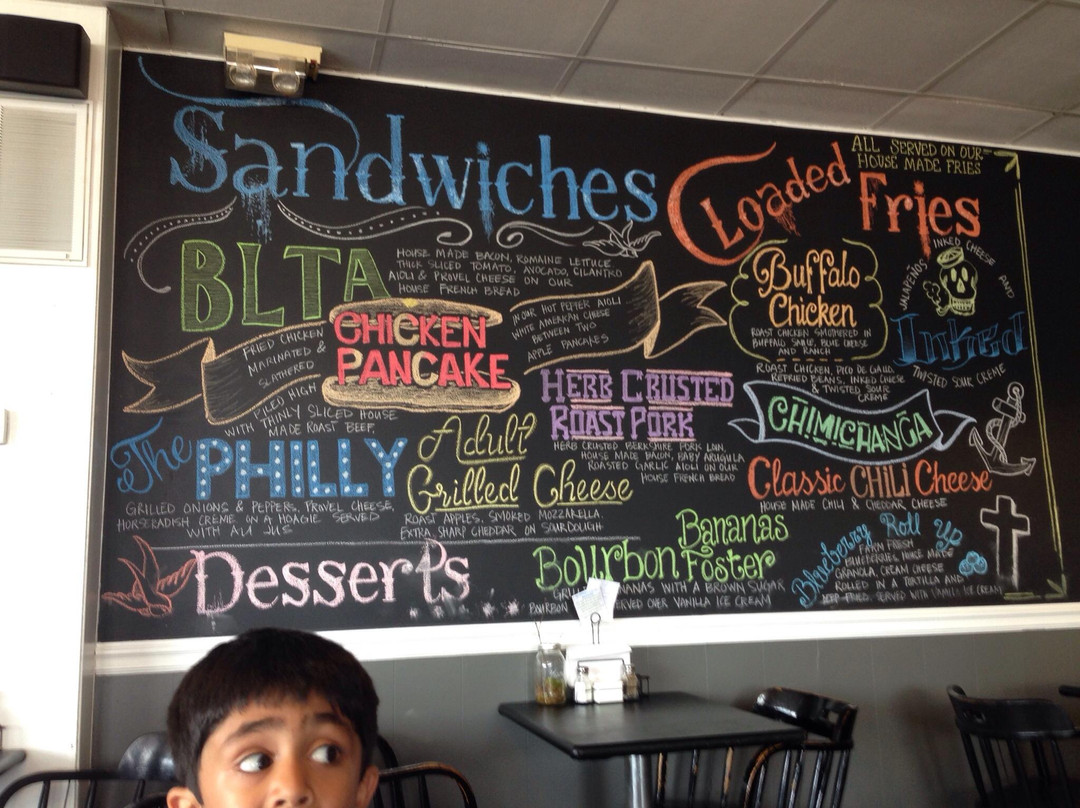 Sandwiches
BLTA
HOUSE MADE BACON, ROMAINE LETTUCE
THICK SLICED TOMATO, AVOCADO, CILANTRO
AIOLI & PROVEL CHEESE ON OUR
HOUSE FRENCH BREAD
FRIED CHICKEN
MARINATED &
SLATHERED
CHICKEN
PANCAKE
IN OUR HOT PEPPER AIOLI
WHITE AMERICAN CHEESE
BETWEEN TWO
APPLE PANCAKES
PILED HIGH
WITH THINLY SLICED HOUSE
MADE ROAST BEEF,
The PHILLY
GRILLED ONIONS & PEPPERS, PROVEL CHEESE,
HORSERADISH CREME ON A HOAGIE SERVED
WITH AU JUS
Adult
Grilled Cheese
ROAST APPLES, SMOKED MOZZARELLA,
EXTRA SHARP CHEDDAR ON SOURDOUGH
HERB CRUSTED
ROAST PORK
HERB CRUSTED BERKSHIRE PORK LOIN,
HOUSE MADE BACON, BABY ARUGULA
ROASTED GARLIC AIOLI ON OUR
HOUSE FRENCH BREAD
Loaded
Fries
ALL SERVED ON OUR
HOUSE MADE FRIES
Buffalo
Chicken
ROAST CHICKEN SMOTHERED IN
BUFFALO SAUCE, BLUE CHEESE
AND RANCH
JALAPEÑOS INKED CHEESE AND
Inked
TWISTED SOUR CREME
ROAST CHICKEN, PICO DE GALLO,
REFRIED BEANS, INKED CHEESE
& TWISTED SOUR
CREME
CHIMICHANGA
Classic CHILI Cheese
HOUSE MADE CHILI & CHEDDAR CHEESE
Desserts
Bananas
Bourbon Foster
BANANAS WITH A BROWN SUGAR
BOURBON SERVED OVER VANILLA ICE CREAM
Blueberry Roll Up
FARM FRESH
BLUEBERRIES, HOUSE MADE
GRANOLA CREAM CHEESE
ROLLED IN A TORTILLA AND
DEEP FRIED. SERVED WITH VANILLA ICE CREAM